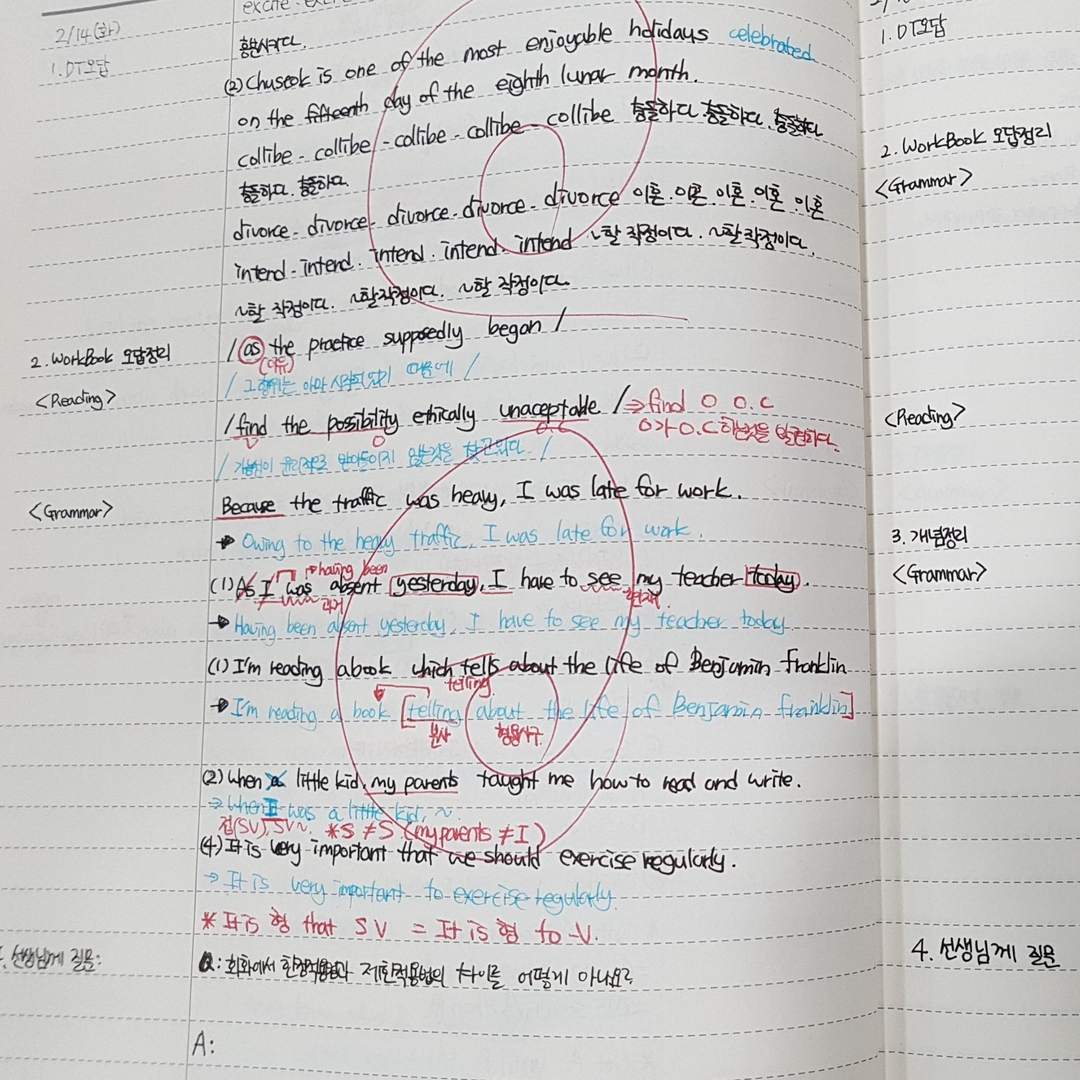 excite
2/14(화)
1. DT오답
흥분시키다.
(2) Chuseok is one of the most enjoyable holidays celebrated
on the fifteenth day of the eighth lunar month.
collibe - collibe - collibe - collibe - collibe 충돌하다. 충돌하다. 충돌하다
충돌하다. 충돌하다.
divorce - divorce - divorce - divorce - divorce 이혼. 이혼. 이혼. 이혼. 이혼
intend - intend. intend. intend. intend ~할 작정이다. ~할 작정이다.
~할 작정이다. ~할 작정이다. ~할 작정이다.
2. WorkBook 오답정리
<Reading>
/ as the practice supposedly began /
(이유)
/ 그 행위는 아마 시작되었기 때문에 /
/ find the possibility ethically unaceptable / ⇒ find O O.C
V O O.C O가 O.C 한것을 발견하다.
윤리적으로 받아들이지
<Grammar>
Because the traffic was heavy, I was late for work.
→ Owing to the heavy traffic, I was late for work.
having been
(1) As I was absent yesterday, I have to see my teacher today.
과거 현재
→ Having been absent yesterday, I have to see my teacher today
(1) I'm reading a book which tells about the life of Benjamin Franklin
telling
→ I'm reading a book [telling about the life of Benjamin Franklin]
분사 형용사구
(2) When a little kid, my parents taught me how to read and write.
→ When I was a little kid, ~.
접(SV), SV~. *S ≠ S (my parents ≠ I)
(4) It is very important that we should exercise regularly.
→ It is very important to exercise regularly.
* It is 형 that S V = It is 형 to -V.
선생님께 질문:
Q: 회화에서 한정적용법과 제한적용법의 차이를 어떻게 아나요?
A:
1. DT오답
2. WorkBook 오답정리
<Grammar>
<Reading>
3. 개념정리
<Grammar>
4. 선생님께 질문